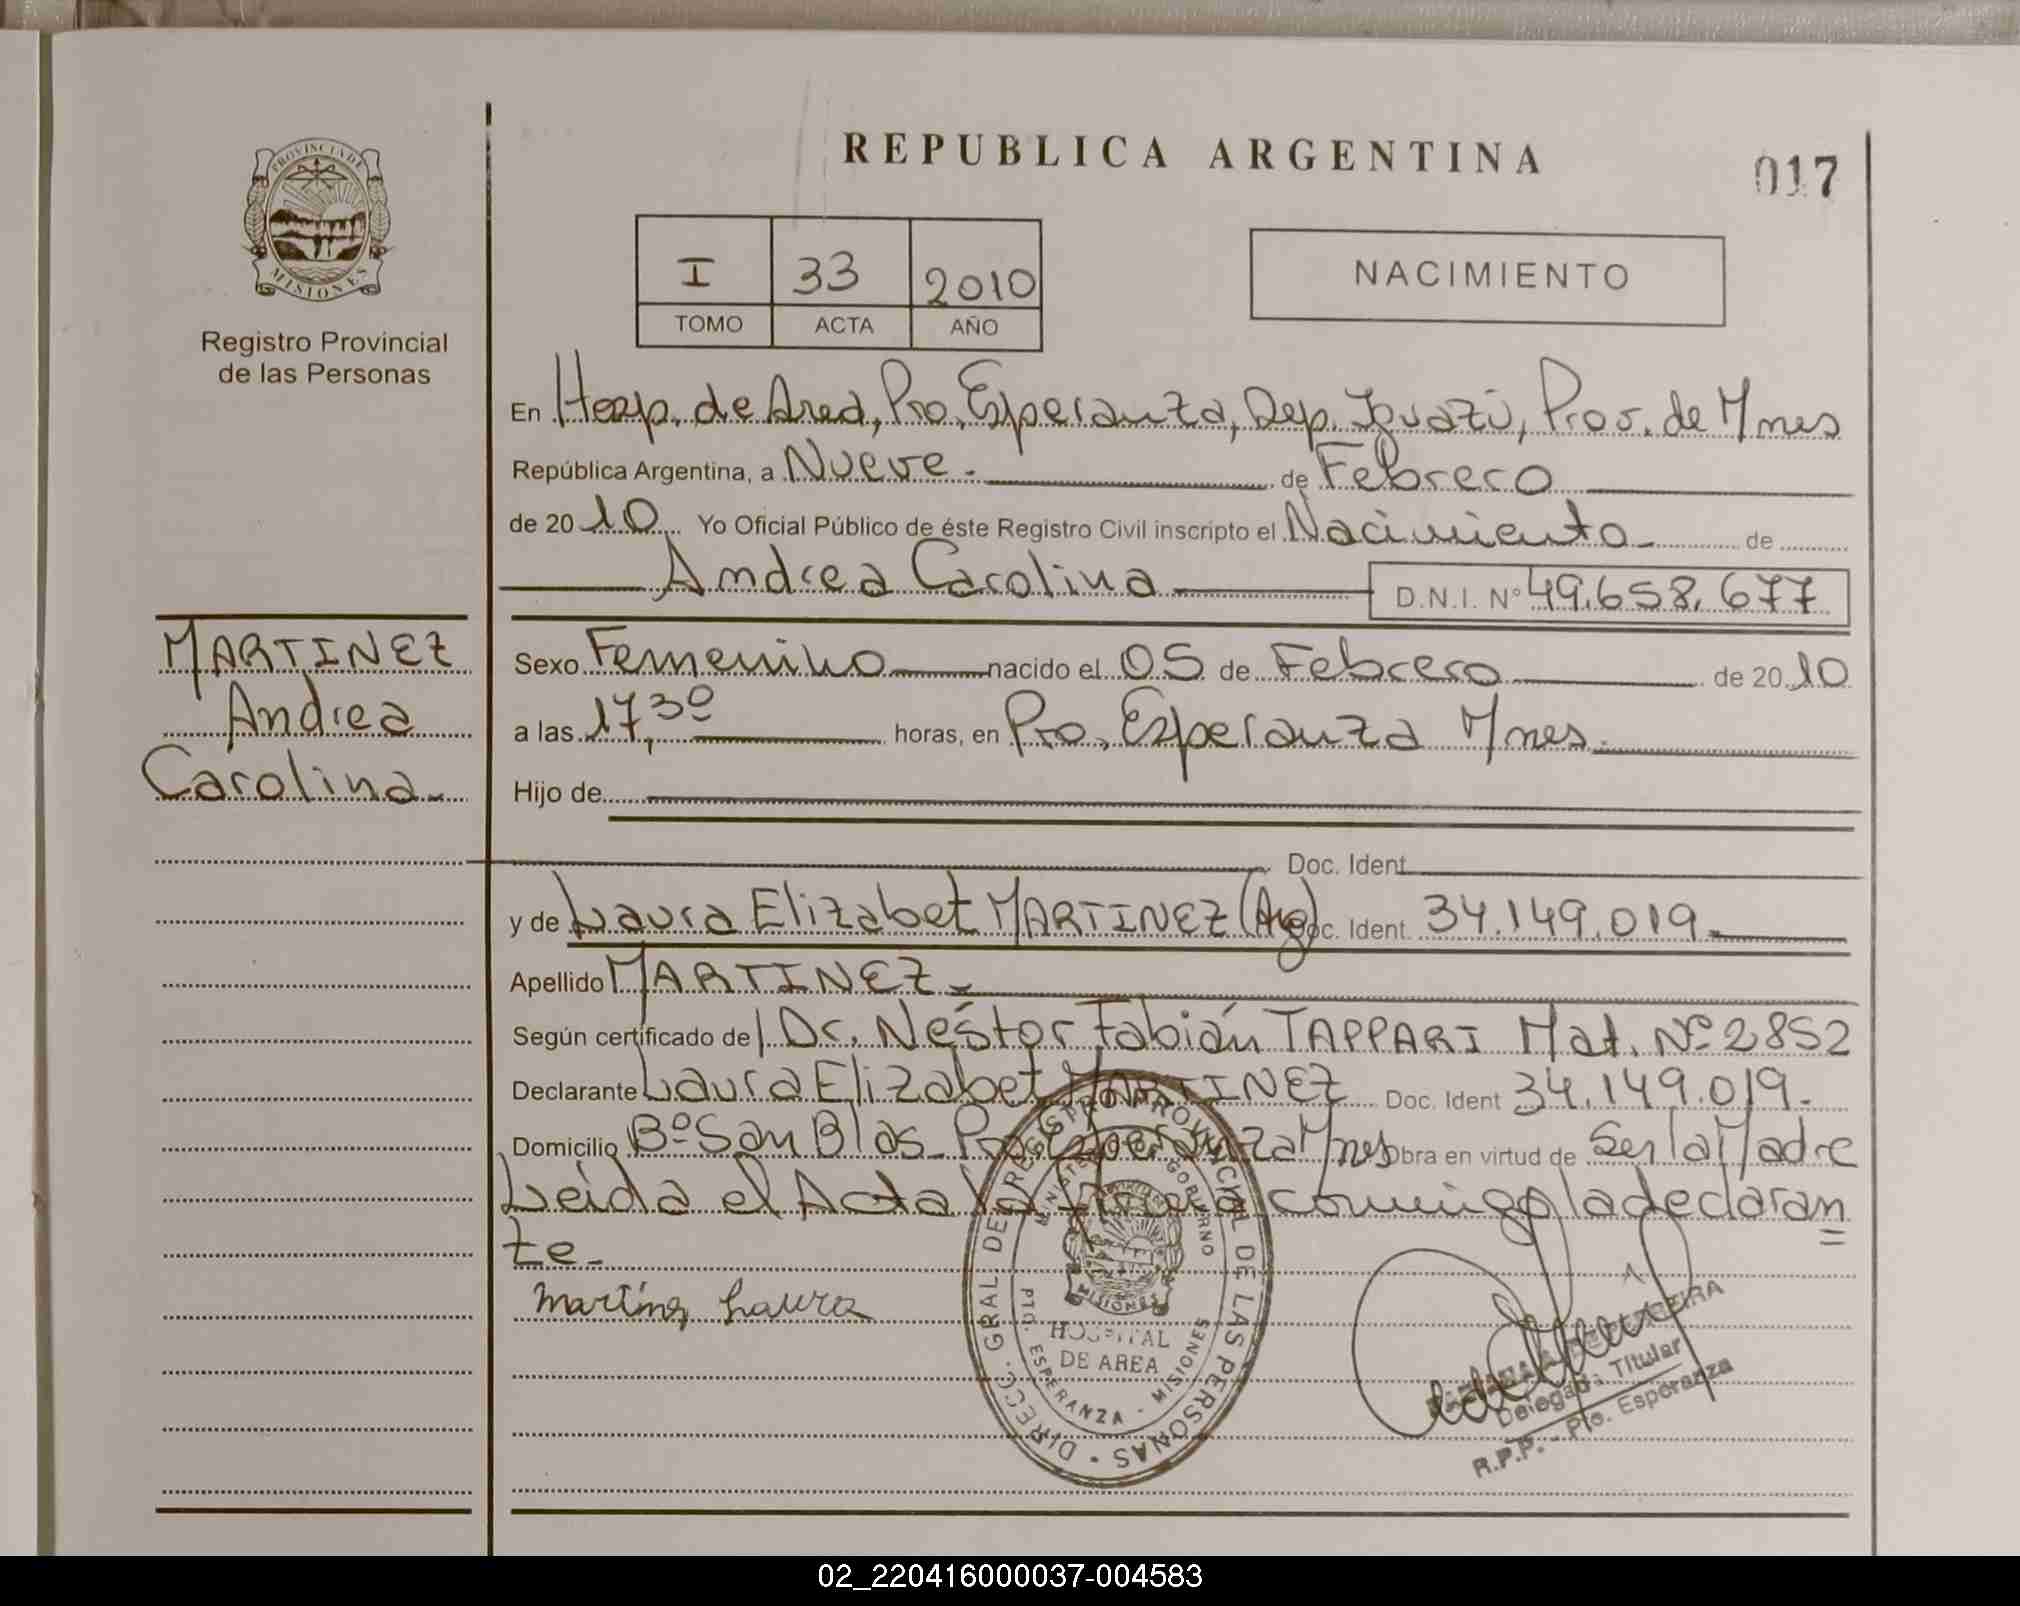 REPUBLICA ARGENTINA
017
PROVINCIA DE
MISIONES
Registro Provincial
de las Personas
I 33 2010
TOMO ACTA AÑO
NACIMIENTO
En Hosp. de Area, Pto. Esperanza, Dep. Iguazú, Prov. de Mnes
República Argentina, a Nueve.- de Febrero
de 20 10 Yo Oficial Público de éste Registro Civil inscripto el Nacimiento de
Andrea Carolina D.N.I. Nº 49.658.677
MARTINEZ
Andrea
Carolina.-
Sexo Femenino nacido el 05 de Febrero de 20 10
a las 17,30 horas, en Pto. Esperanza Mnes.
Hijo de
Doc. Ident
y de Laura Elizabet MARTINEZ (Arg) Doc. Ident. 34.149.019.-
Apellido MARTINEZ.-
Según certificado de Dr. Néstor Fabián TAPPARI Mat. Nº 2852
Declarante Laura Elizabet MARTINEZ Doc. Ident 34.149.019.-
Domicilio Bº San Blas- Pto Esperanza Mnes Obra en virtud de Ser la Madre
Leída el Acta la firma conmigo la declaran=
te.-
Martinez Laura
DIRECC. GRAL DEL REGISTRO PROVINCIAL DE LAS PERSONAS
MINISTERIO DE GOBIERNO
MISIONES
HOSPITAL
DE AREA
PTO. ESPERANZA - MISIONES
Delegada Titular
R.P.P. - Pto. Esperanza
02_220416000037-004583